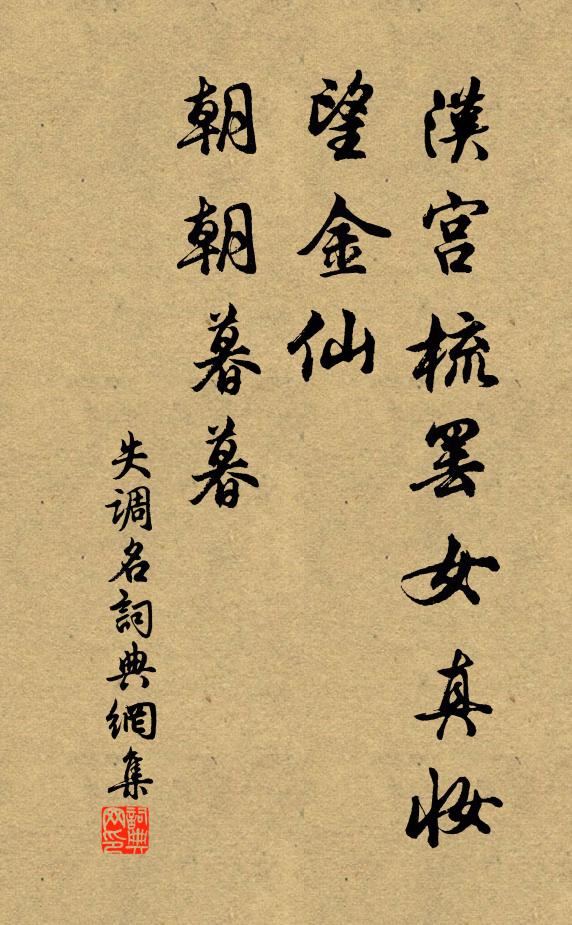 漢宫梳罢女真妆
望金仙
朝朝暮暮
失调名詞典網集
詞典网印